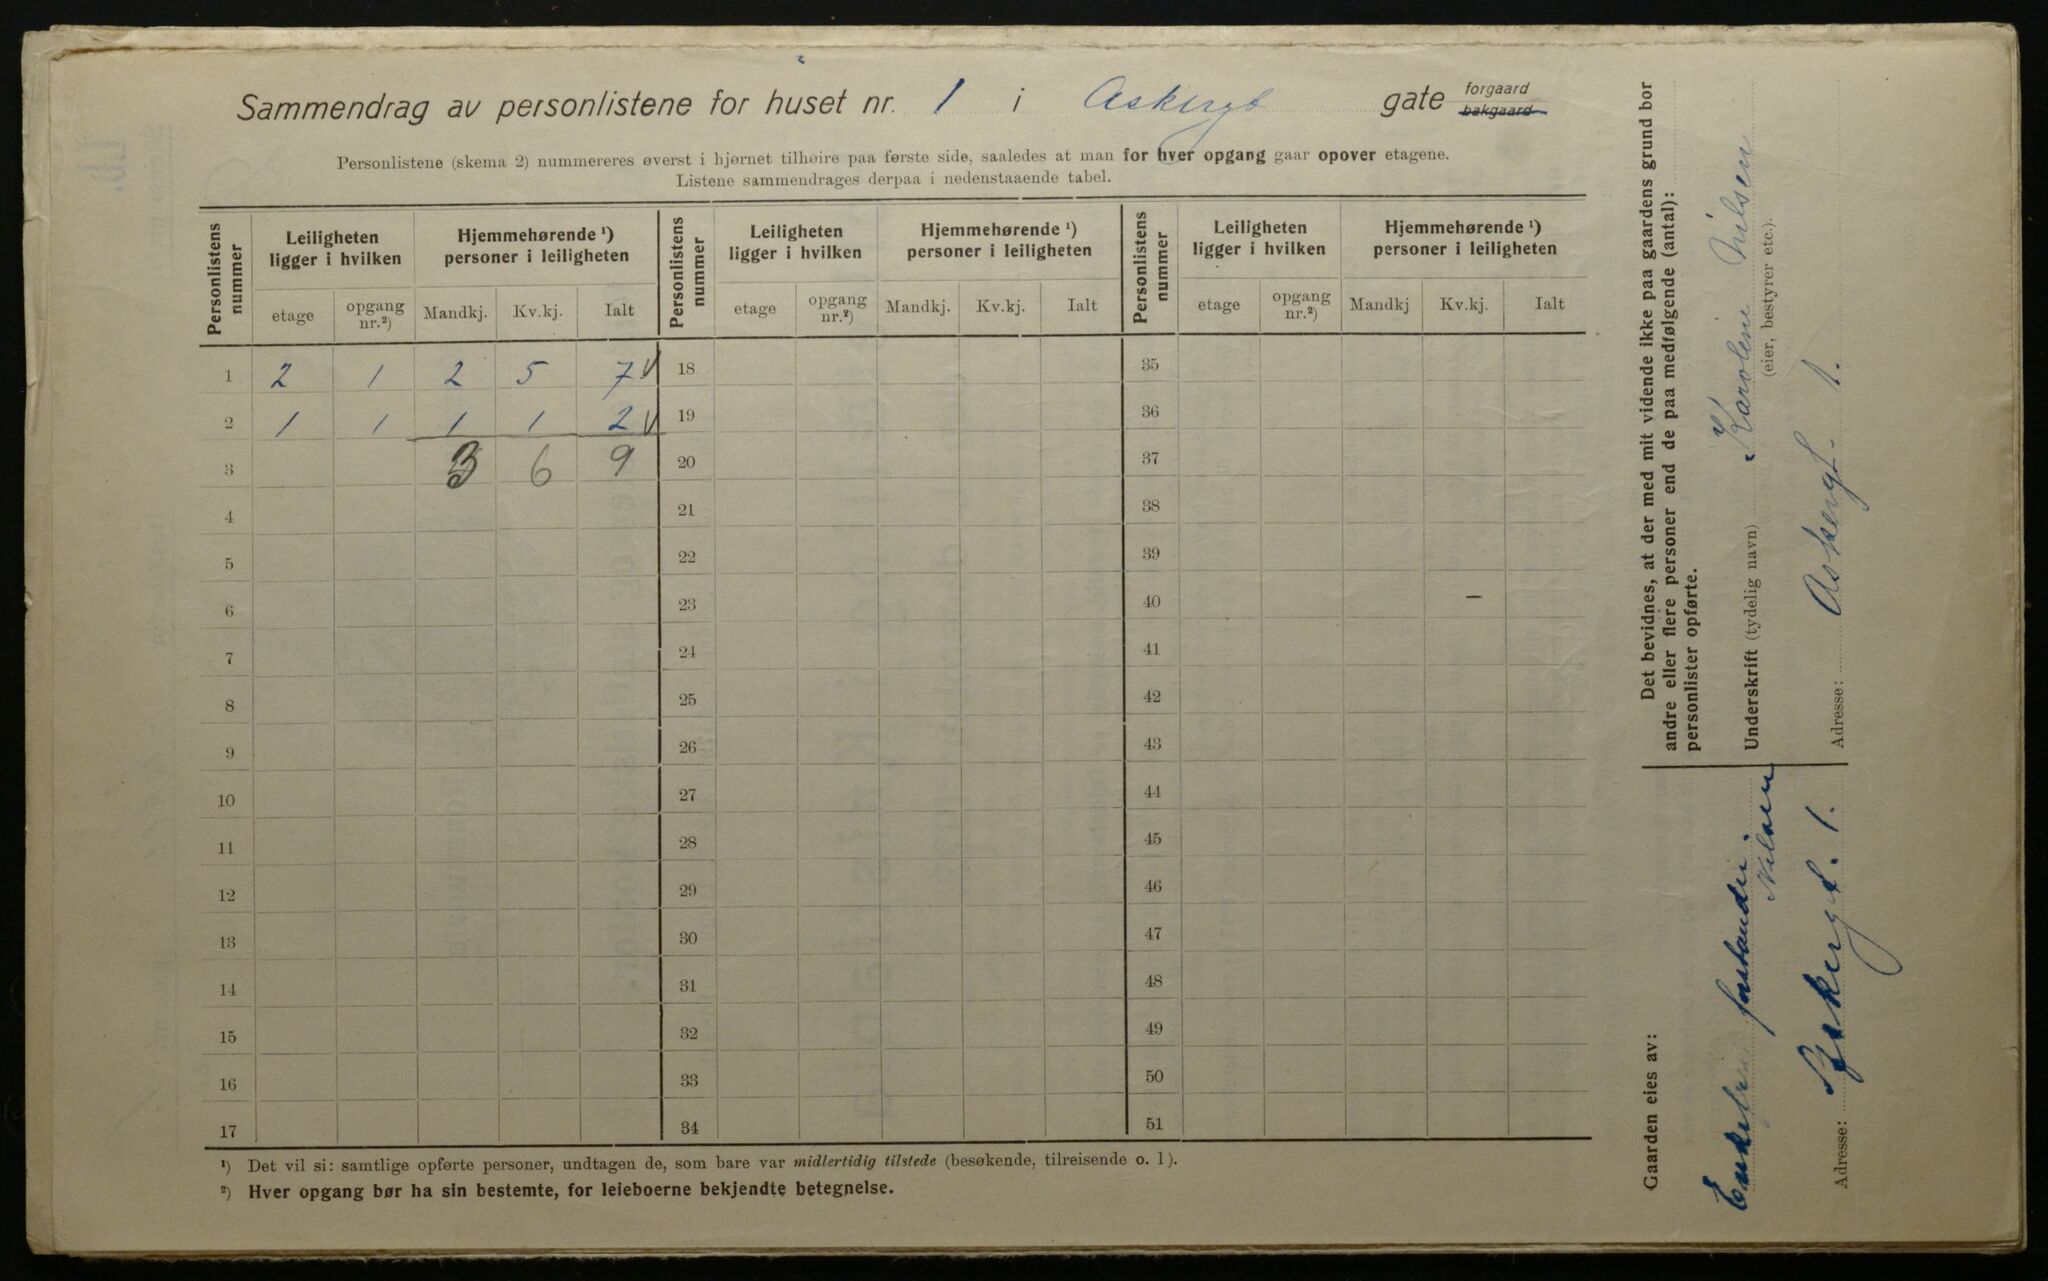 Sammendrag av personlistene for huset nr. 1 i Askergt gate forgaard bakgaard
Personlistene (skema 2) nummereres øverst i hjørnet tilhøire paa første side, saaledes at man for hver opgang gaar opover etagene.
Listene sammendrages derpaa i nedenstaaende tabel.
Personlistens nummer | Leiligheten ligger i hvilken | Hjemmehørende ¹) personer i leiligheten | Personlistens nummer | Leiligheten ligger i hvilken | Hjemmehørende ¹) personer i leiligheten | Personlistens nummer | Leiligheten ligger i hvilken | Hjemmehørende ¹) personer i leiligheten
etage | opgang nr.²) | Mandkj. | Kv.kj. | Ialt | etage | opgang nr.²) | Mandkj. | Kv.kj. | Ialt | etage | opgang nr.²) | Mandkj | Kv.kj. | Ialt
1 2 1 2 5 7 V 18 35
2 1 1 1 1 2 V 19 36
3 3 6 9 20 37
4 21 38
5 22 39
6 23 40 –
7 24 41
8 25 42
9 26 43
10 27 44
11 28 45
12 29 46
13 30 47
14 31 48
15 32 49
16 33 50
17 34 51
¹) Det vil si: samtlige opførte personer, undtagen de, som bare var midlertidig tilstede (besøkende, tilreisende o. l).
²) Hver opgang bør ha sin bestemte, for leieboerne bekjendte betegnelse.
Det bevidnes, at der med mit vidende ikke paa gaardens grund bor
andre eller flere personer end de paa medfølgende (antal):
personlister opførte.
Underskrift (tydelig navn) Karoline Nilsen
(eier, bestyrer etc.).
Adresse: Askergt. 1.
Gaarden eies av:
Enkefru forstander
Nilsen
Adresse: Askergt. 1.